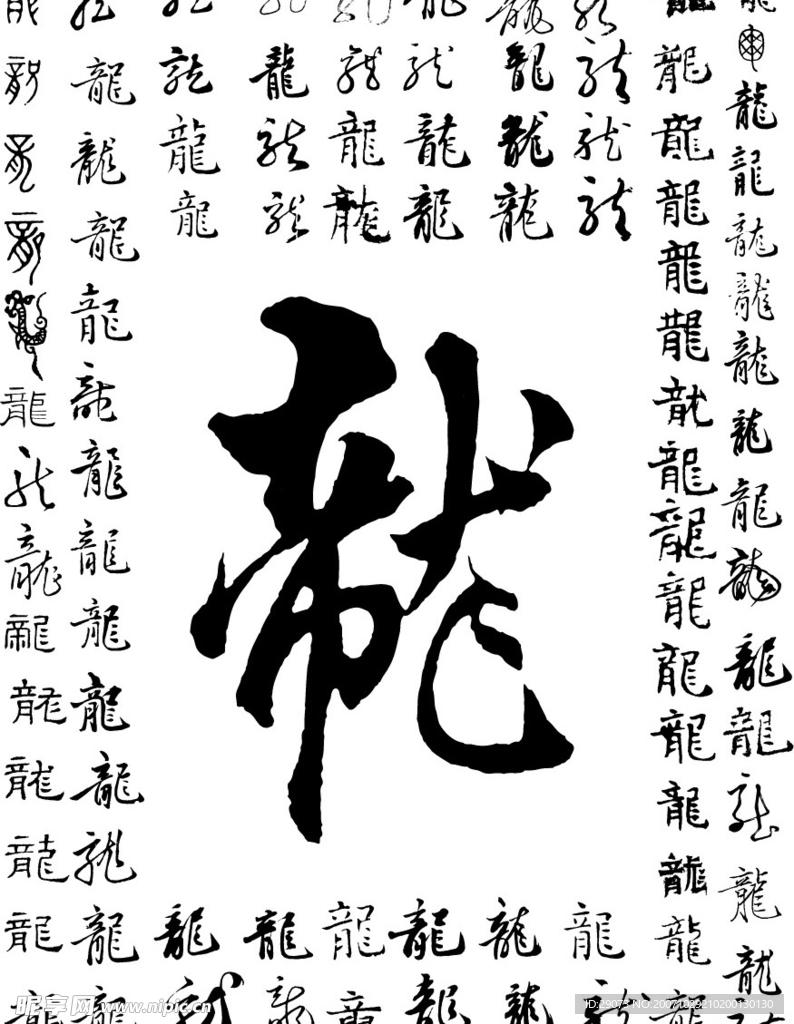 龍 龍 龍 龍 龍 龍 龍 龍 龍 龍
龍 龍 龍 龍 龍 龍 龍 龍 龍 龍
龍 龍 龍 龍 龍 龍 龍 龍 龍 龍
龍 龍 龍 龍 龍 龍 龍 龍 龍 龍
龍 龍 龍 龍
龍 龍 龍 龍
龍 龍 龍 龍
龍 龍 龍 龍
龍
龍 龍 龍 龍
龍 龍 龍 龍
龍 龍 龍 龍
龍 龍 龍 龍
龍 龍 龍 龍 龍 龍 龍 龍 龍 龍
龍 龍 龍 龍 龍 龍 龍 龍 龍 龍
昵享网 www.nipic.cn
ID:29075 NO:20071029210200130130